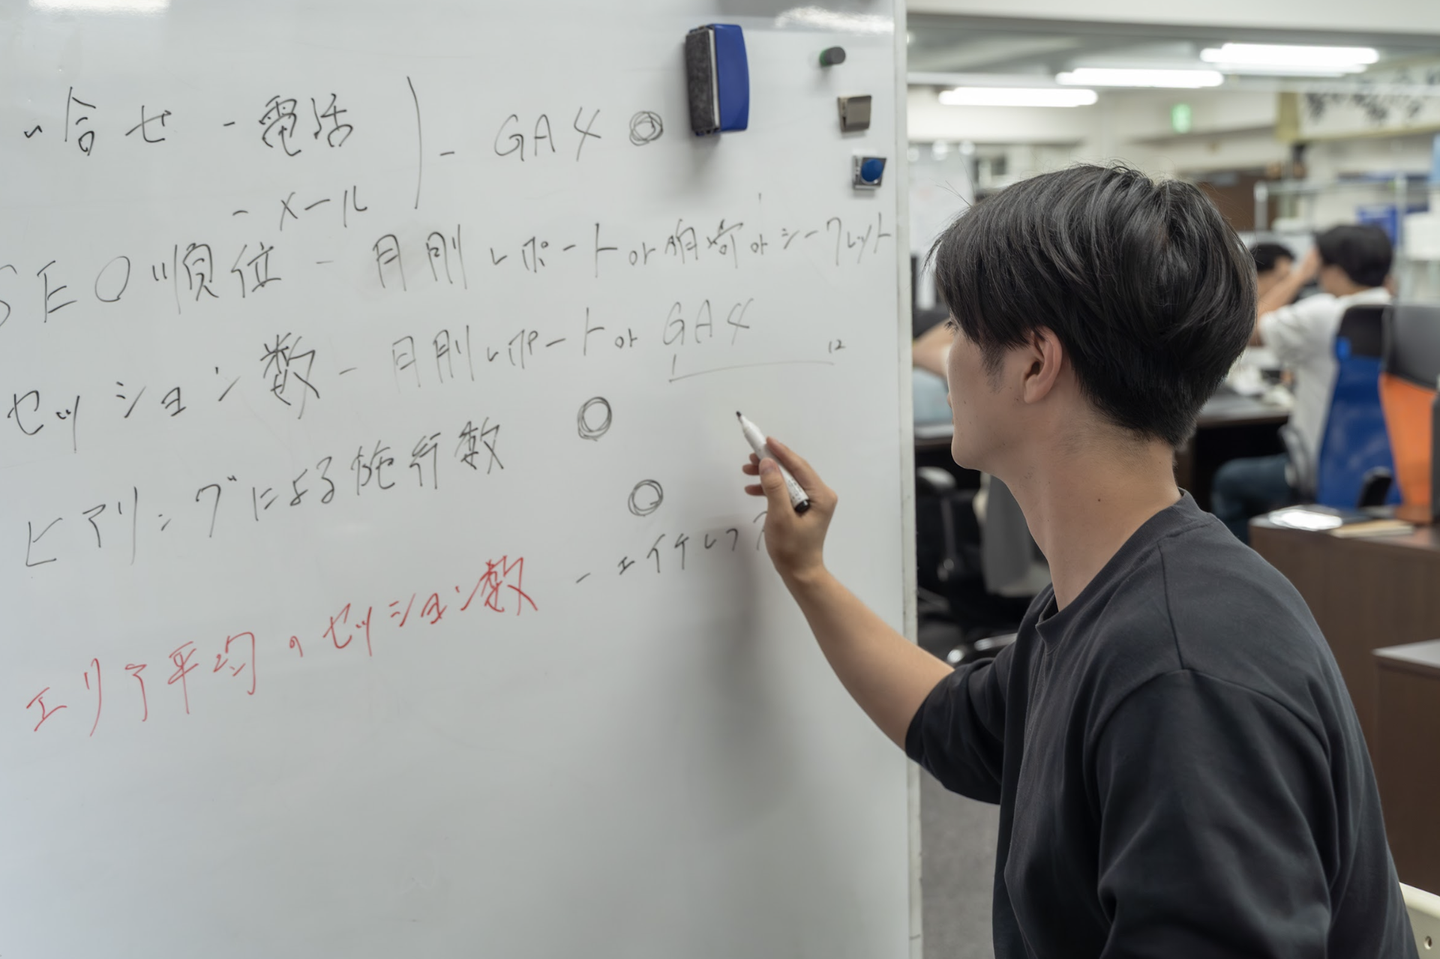 い合せ - 電話 - GA4 ◎
- メール
SEO順位 - 月別レポート or 順位 or シークレット
セッション数 - 月別レポート or GA4
1 12
ヒアリングによる施行数 ◎
◎
エリア平均のセッション数 - エイチレフ